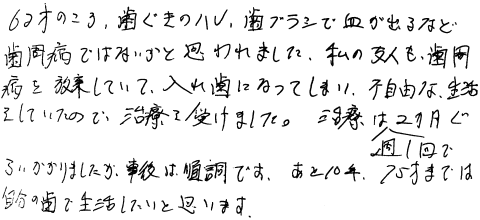 62才のころ、歯ぐきのハレ、歯ブラシで血が出るなど
歯周病ではないかと思われました。私の友人も、歯周
病を放棄していて、入れ歯になってしまい、不自由な生活
をしていたので、治療を受けました。治療は2ヶ月ぐ
週1回で
らいかかりましたが、事後は順調です。あと10年、75才までは
自分の歯で生活したいと思います。